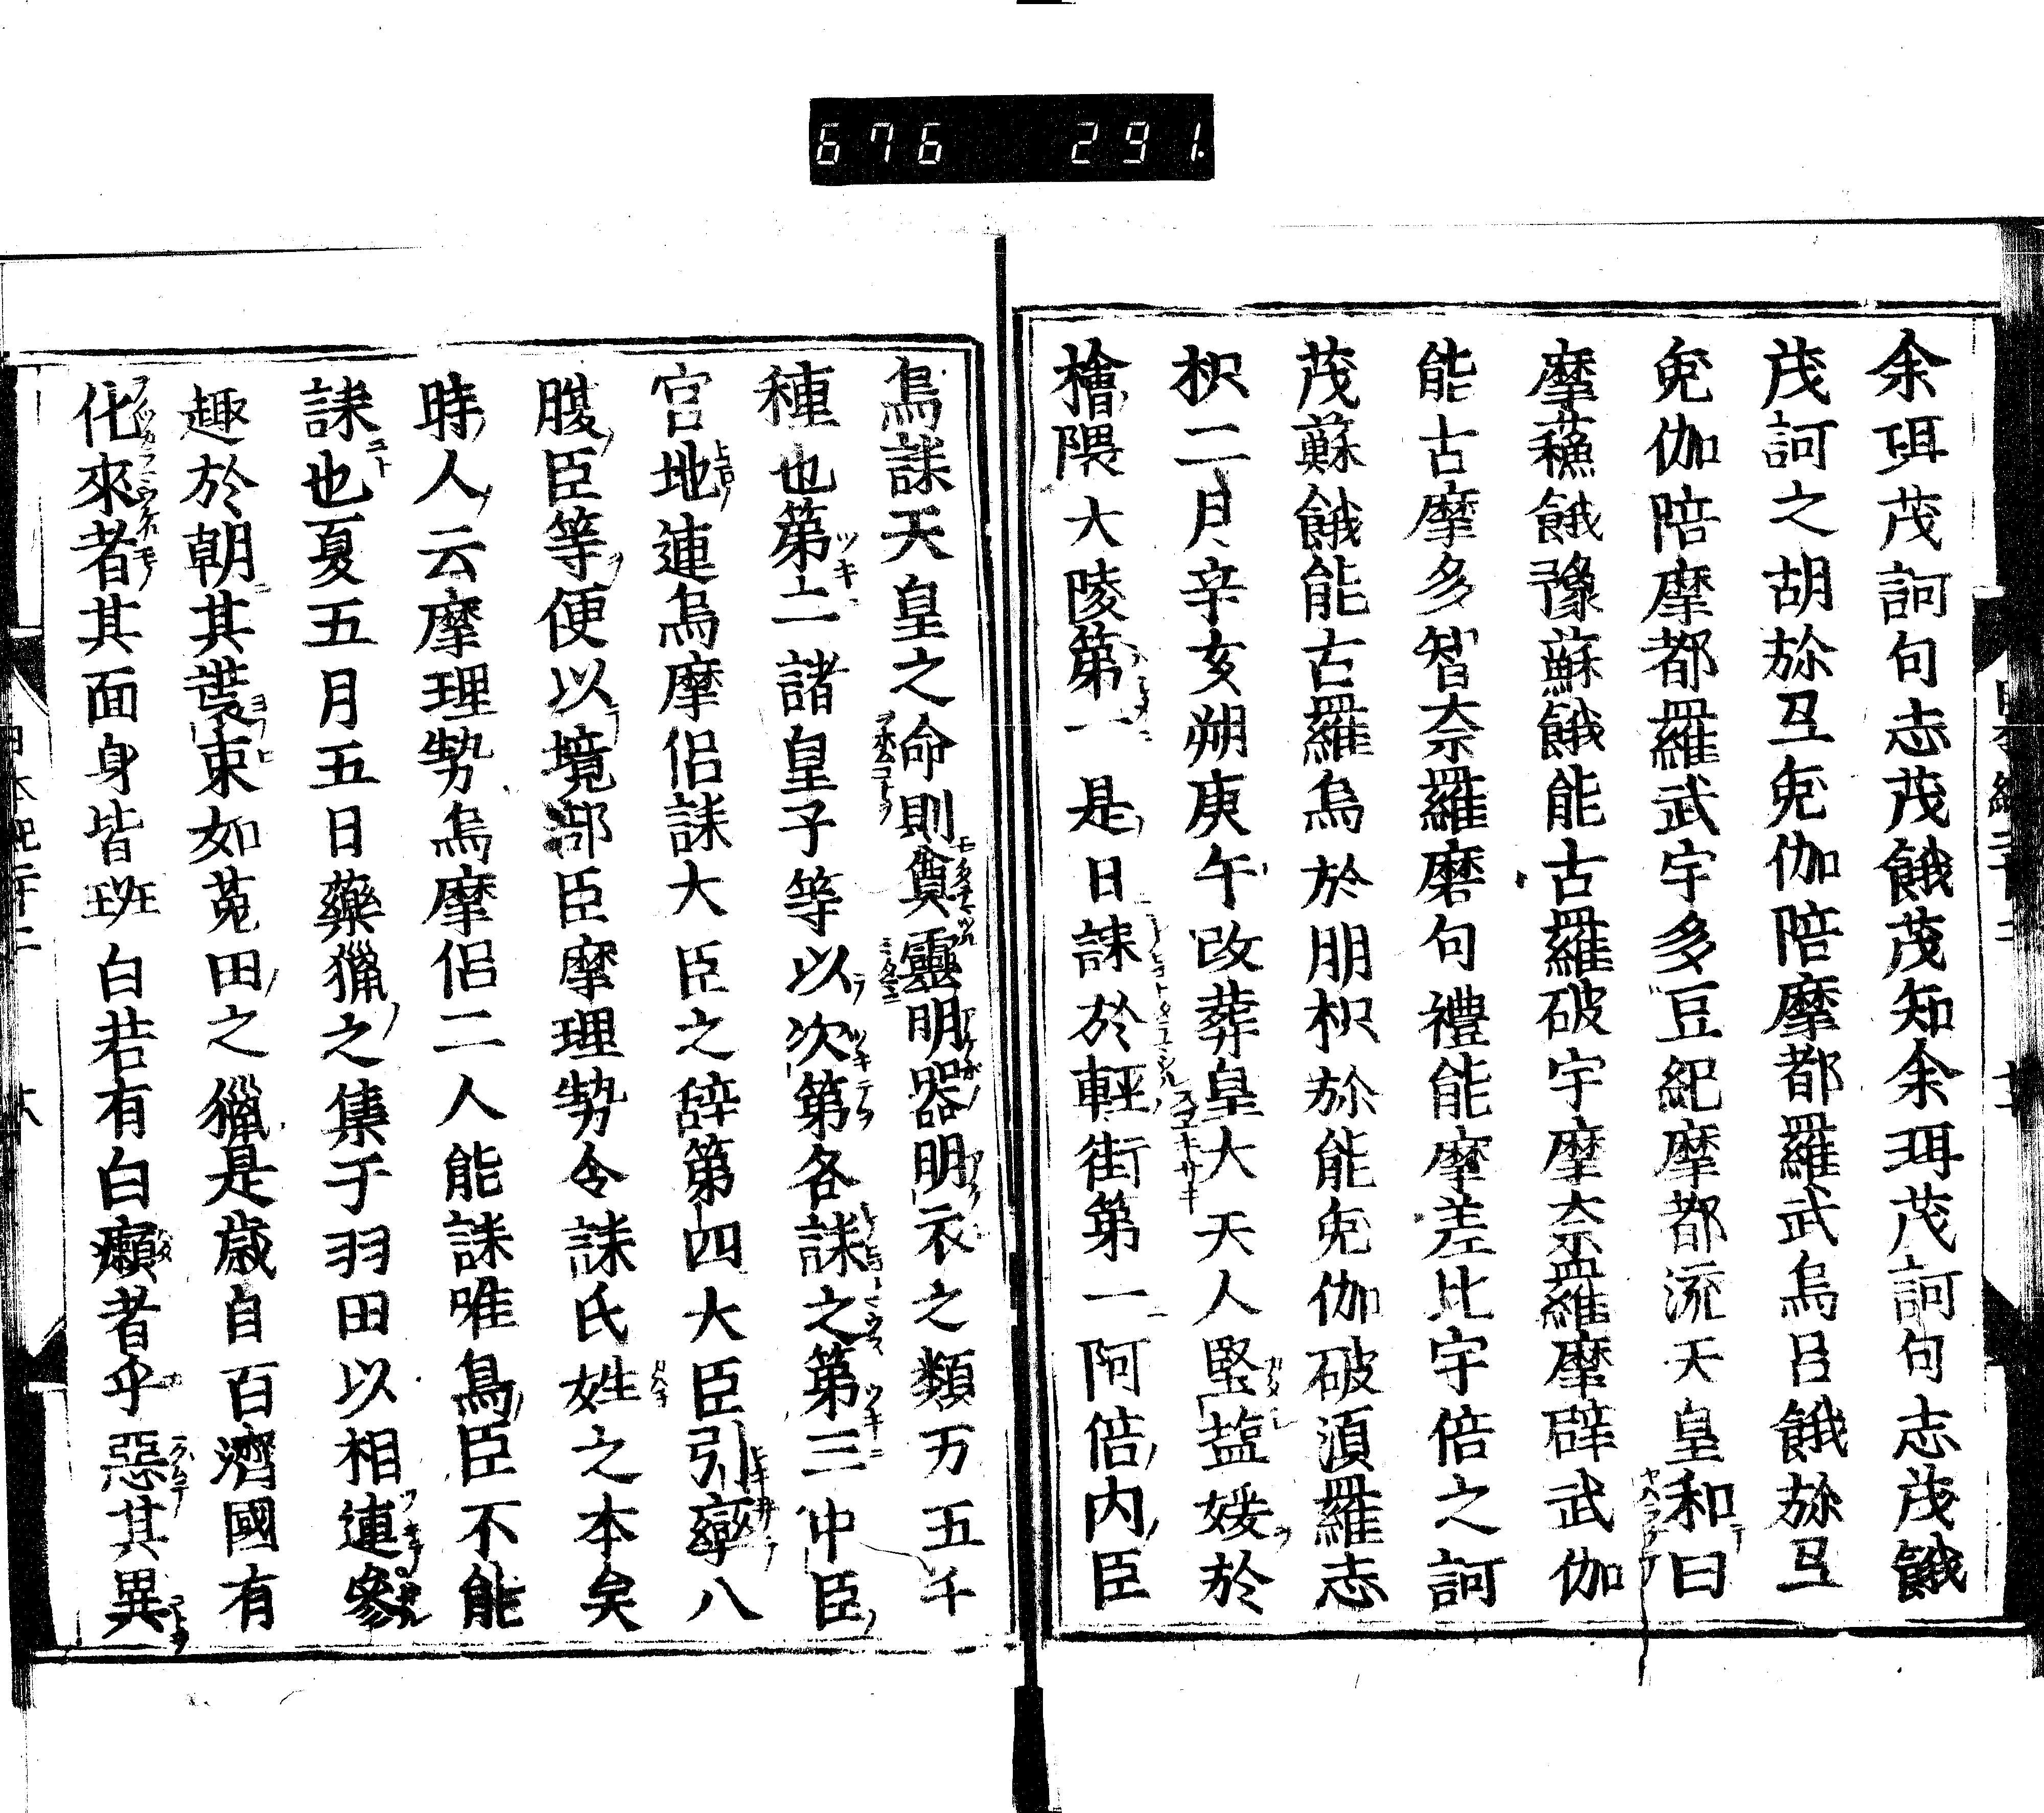 676 291.
余珥茂訶句志茂餓茂知余珥茂訶句志茂餓
茂訶之胡菸弖兔伽陪摩都羅武烏呂餓菸弖
兔伽陪摩都羅武宇多豆紀摩都流天皇和曰
摩蘓餓豫蘇餓能古羅破宇摩奈羅摩辟武伽
能古摩多智奈羅磨句禮能摩差比宇倍之訶
茂蘇餓能古羅烏於朋枳菸能兔伽破湏羅志
枳二月辛亥朔庚午改葬皇大夫人堅塩媛於
檜隈大陵第一是日誄於輕街第一阿倍内臣
鳥誄天皇之命則奠靈明器明衣之類万五千
種也第二諸皇子等以次第各誄之第三中臣
宮地連烏摩侶誄大臣之辞第四大臣引率八
腹臣等便以境部臣摩理勢令誄氏姓之本矣
時人云摩理勢烏摩侶二人能誄唯鳥臣不能
誄也夏五月五日藥獵之集于羽田以相連參
趣於朝其裝束如菟田之獵是歳自百濟國有
化來者其面身皆斑白若有白癩者乎惡其異